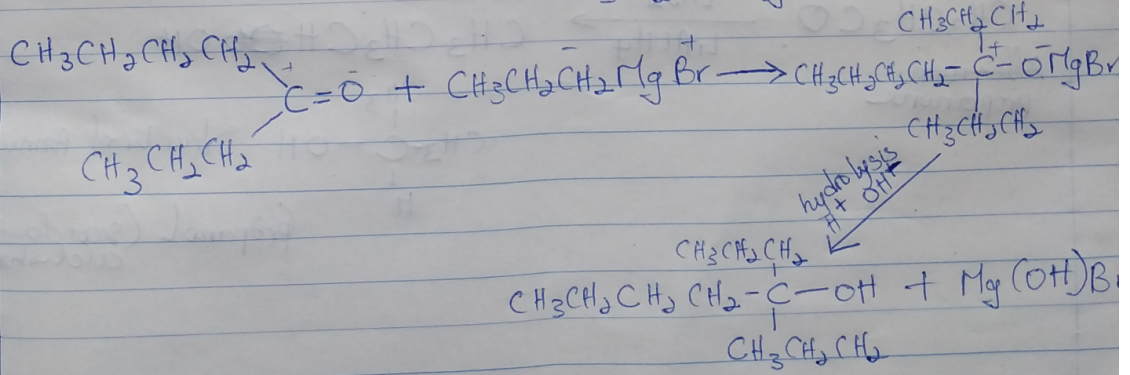 CH3CH2CH2
CH3CH2CH2CH2 C+=O- + CH3CH2C-H2MgB+r → CH3CH2CH2CH2-C+-O-MgBr
CH3CH2CH2
CH3CH2CH2
hydrolysis
H+ OH-
CH3CH2CH2
CH3CH2CH2CH2-C-OH + Mg(OH)B
CH3CH2CH2